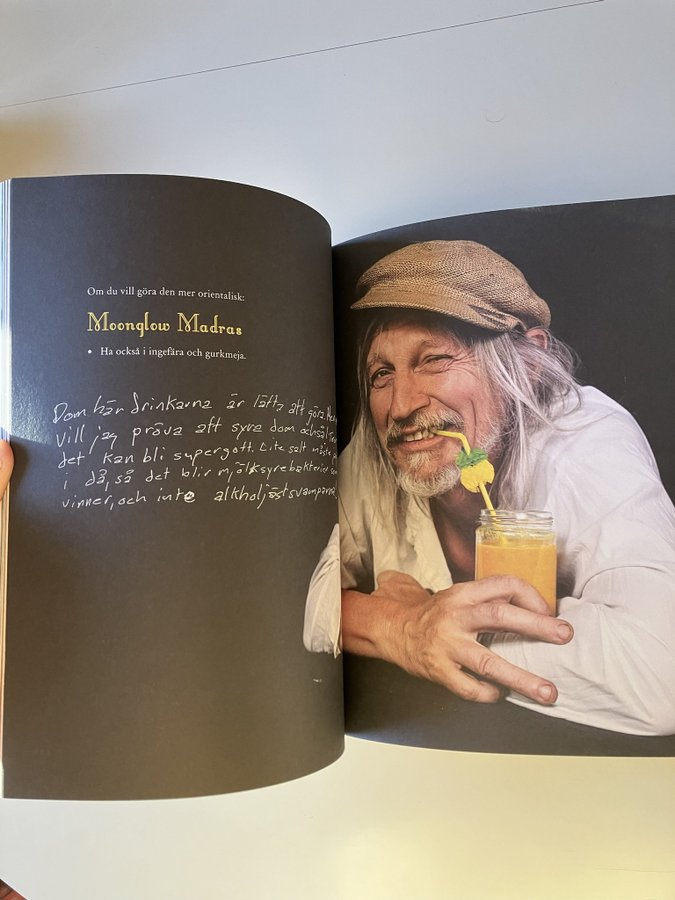 Om du vill göra den mer orientalisk:
Moonglow Madras
• Ha också i ingefära och gurkmeja.
Dom här drinkarna är lätta att göra.
vill jag pröva att syra dom också!
det kan bli supergott. Lite salt måste
i då, så det blir mjölksyrebakterier som
vinner, och inte alkholjästsvamparna